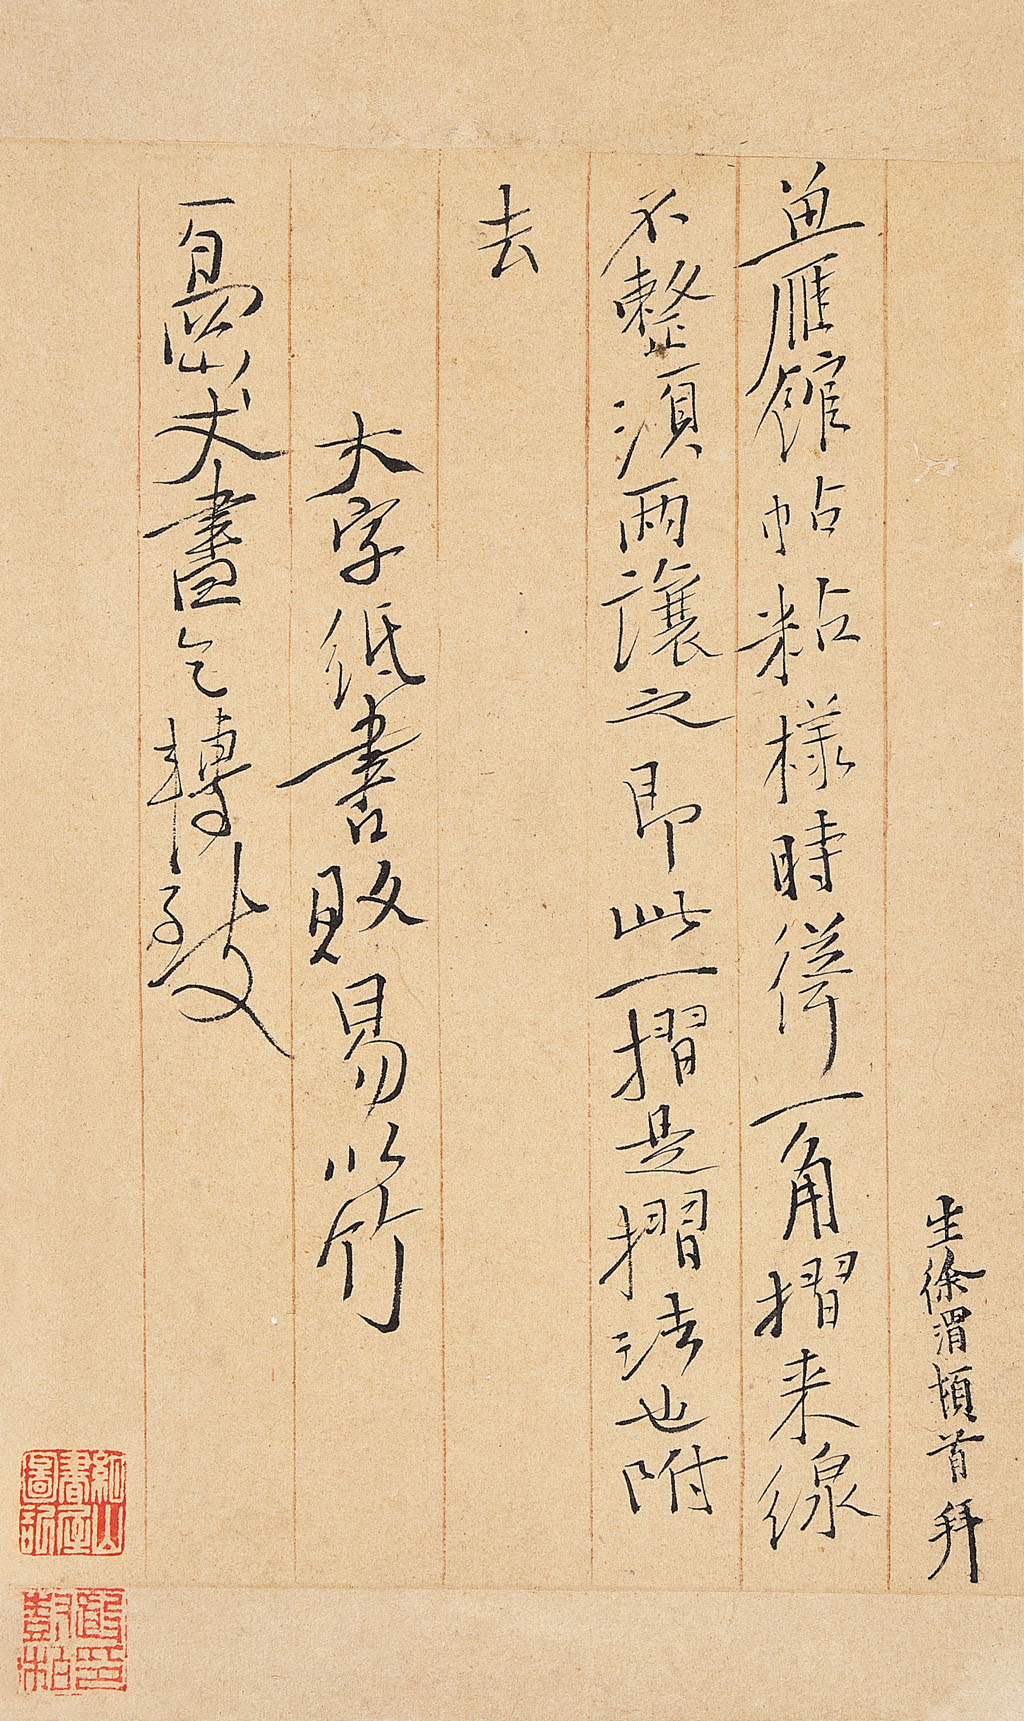 生徐渭頓首拜
魚雁館帖粘樣時得一角摺来線
不整須兩讓之即此一摺是摺法也附
去
大字紙書敗易以竹
丈書乞轉致